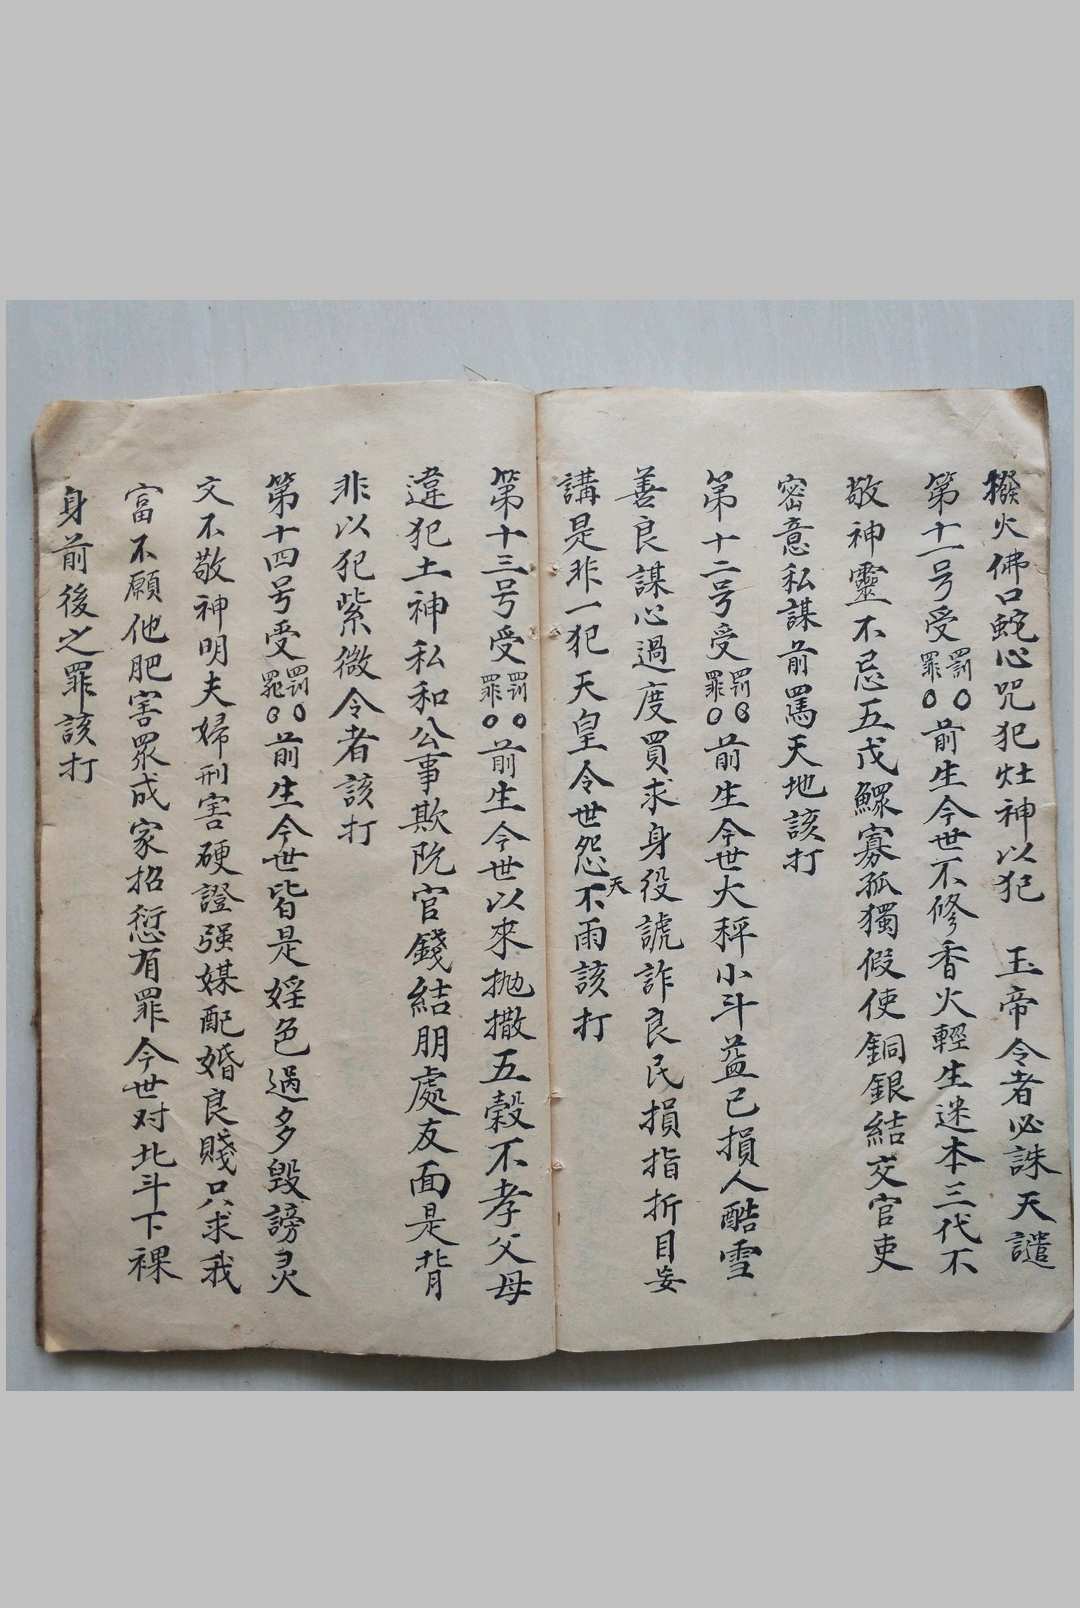 撥火佛口蛇心咒犯灶神以犯　玉帝令者必誅天譴
第十一号受罰罪〇〇前生今世不修香火輕生迷本三代不
敬神靈不忌五戊鰥寡孤獨假使銅銀結交官吏
密意私謀前罵天地該打
第十二号受罰罪〇〇前生今世大秤小斗益己損人酷雪
善良謀心過度買求身役諕詐良民損指折目妄
講是非一犯天皇令世怨天不雨該打
第十三号受罰罪〇〇前生今世以來拋撒五穀不孝父母
違犯土神私和公事欺阮官錢結朋處友面是背
非以犯紫微令者該打
第十四号受罰罪〇〇前生今世皆是婬色過多毀謗灵
文不敬神明夫婦刑害硬證强媒配婚良賤只求我
富不願他肥害眾成家招愆有罪今世对北斗下裸
身前後之罪該打